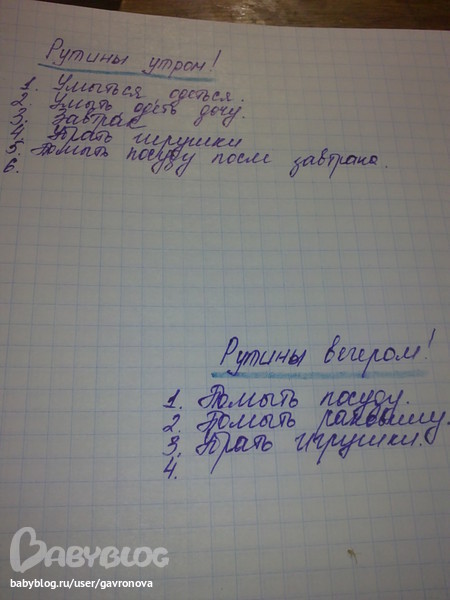 Рутины утром!
1. Умыться одеться.
2. Умыть одеть дочу.
3. Завтрак
4. Прать игрушки
5. Помыть посуду после завтрака.
6.
Рутины вечером!
1. Помыть посуду.
2. Помыть раковину.
3. Прать игрушки.
4.
BABYBLOG
babyblog.ru/user/gavronova